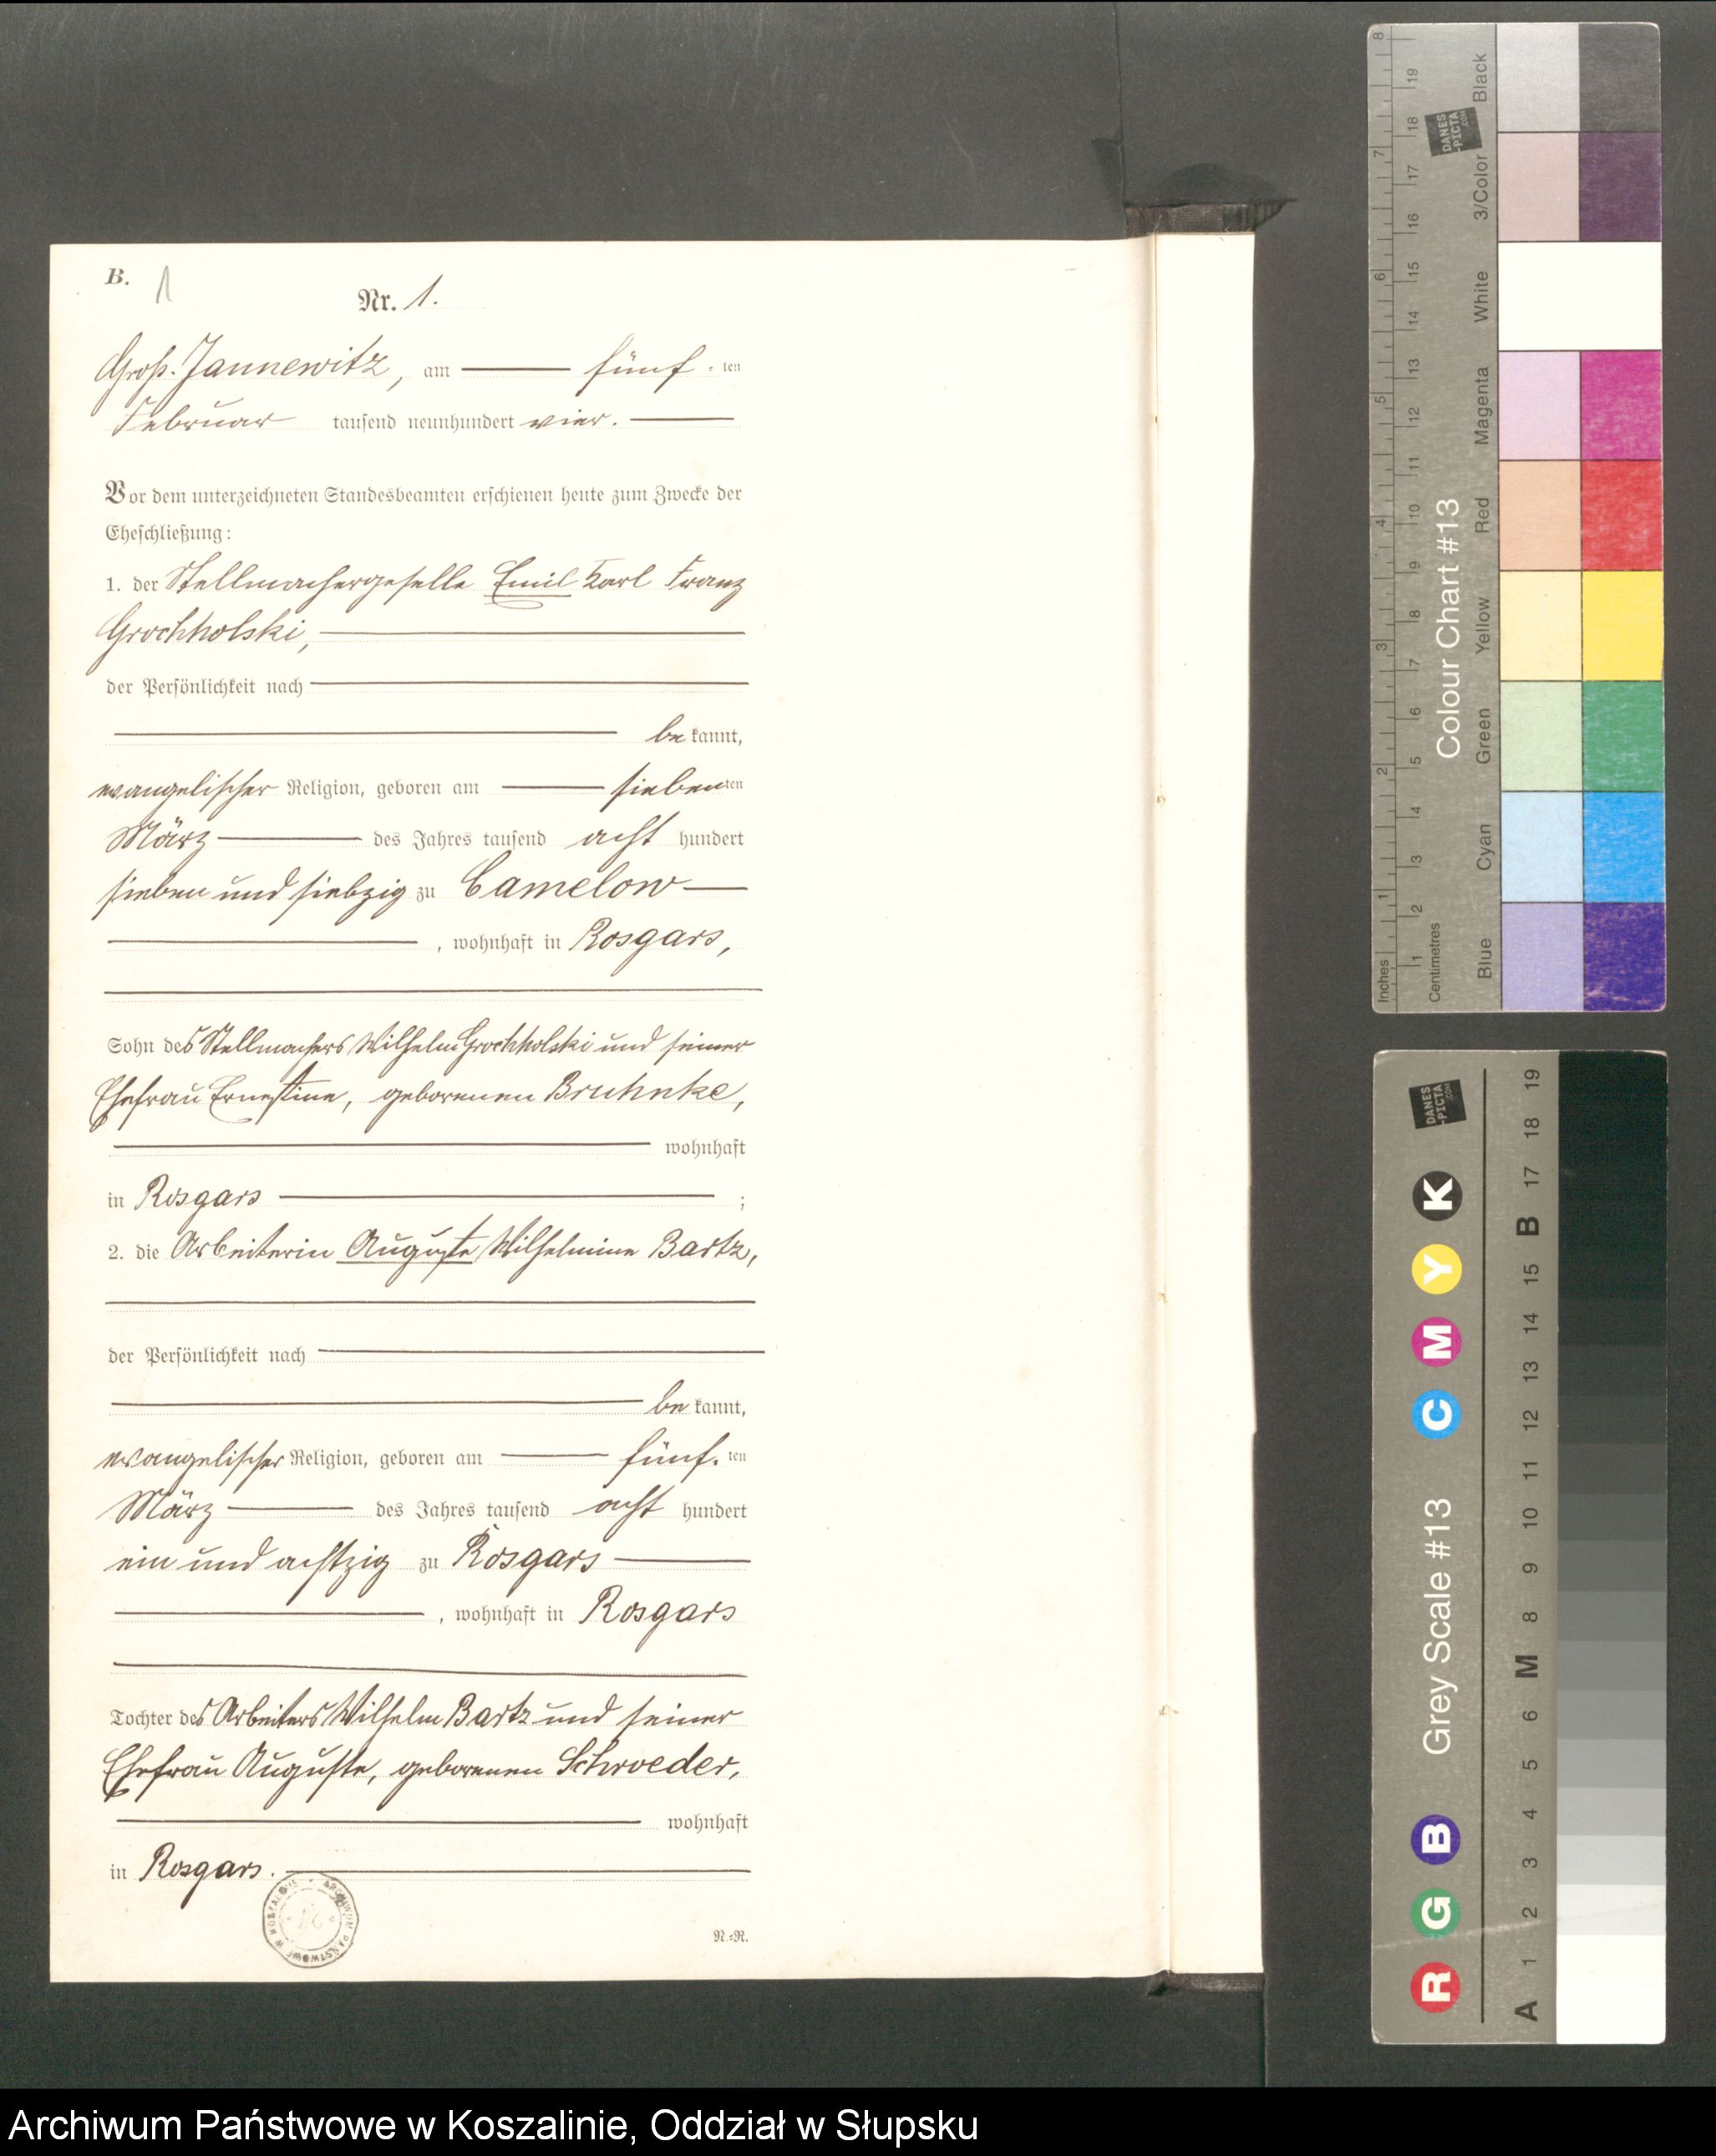 B.
1
Nr. 1.
Groß-Jannewitz, am fünf-ten
Februar tausend neunhundert vier.
Vor dem unterzeichneten Standesbeamten erschienen heute zum Zwecke der
Eheschließung:
1. der Stellmachergeselle Emil Karl Franz
Grochholski,
der Persönlichkeit nach
be kannt,
evangelischer Religion, geboren am siebenten
März des Jahres tausend acht hundert
sieben und siebzig zu Camelow
, wohnhaft in Rosgars,
Sohn des Stellmachers Wilhelm Grochholski und seiner
Ehefrau Ernestine, geborenen Bruhnke,
wohnhaft
in Rosgars ;
2. die Arbeiterin Auguste Wilhelmine Bartz,
der Persönlichkeit nach
be kannt,
evangelischer Religion, geboren am fünf-ten
März des Jahres tausend acht hundert
ein und achtzig zu Rosgars
, wohnhaft in Rosgars
Tochter des Arbeiters Wilhelm Bartz und seiner
Ehefrau Auguste, geborenen Schroeder,
wohnhaft
in Rosgars.
ARCHIWUM PAŃSTWOWE W KOSZALINIE
N.=R.
Inches 1 2 3 4 5 6 7 8
Centimetres 1 2 3 4 5 6 7 8 9 10 11 12 13 14 15 16 17 18 19
Colour Chart #13
DANES
-PICTA
.COM
Blue Cyan Green Yellow Red Magenta White 3/Color Black
Grey Scale #13
DANES
-PICTA
.COM
R G B C M Y K
A 1 2 3 4 5 6 M 8 9 10 11 12 13 14 15 B 17 18 19
Archiwum Państwowe w Koszalinie, Oddział w Słupsku